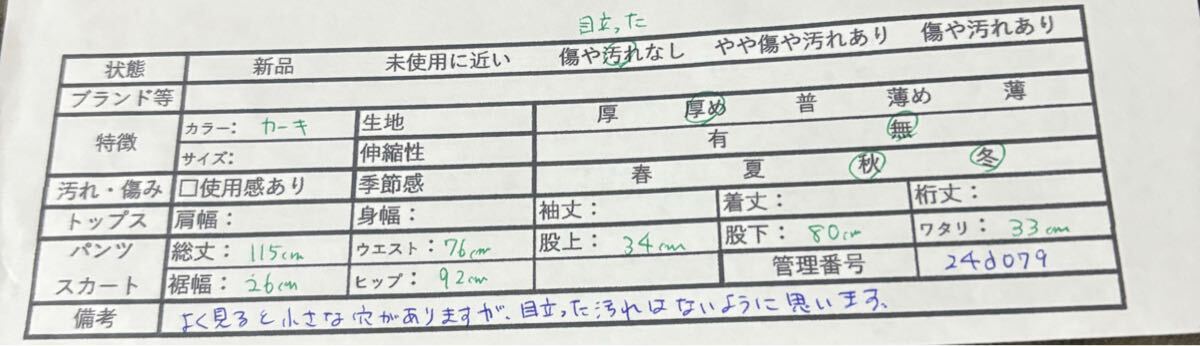 目立った
状態 新品 未使用に近い 傷や汚れなし やや傷や汚れあり 傷や汚れあり
ブランド等
特徴 カラー: カーキ 生地 厚 厚め 普 薄め 薄
サイズ: 伸縮性 有 無
汚れ・傷み □使用感あり 季節感 春 夏 秋 冬
トップス 肩幅: 身幅: 袖丈: 着丈: 裄丈:
パンツ 総丈: 115cm ウエスト: 76cm 股上: 34cm 股下: 80cm ワタリ: 33cm
スカート 裾幅: 26cm ヒップ: 92cm 管理番号 24d079
備考 よく見ると小さな穴がありますが、目立った汚れはないように思います。